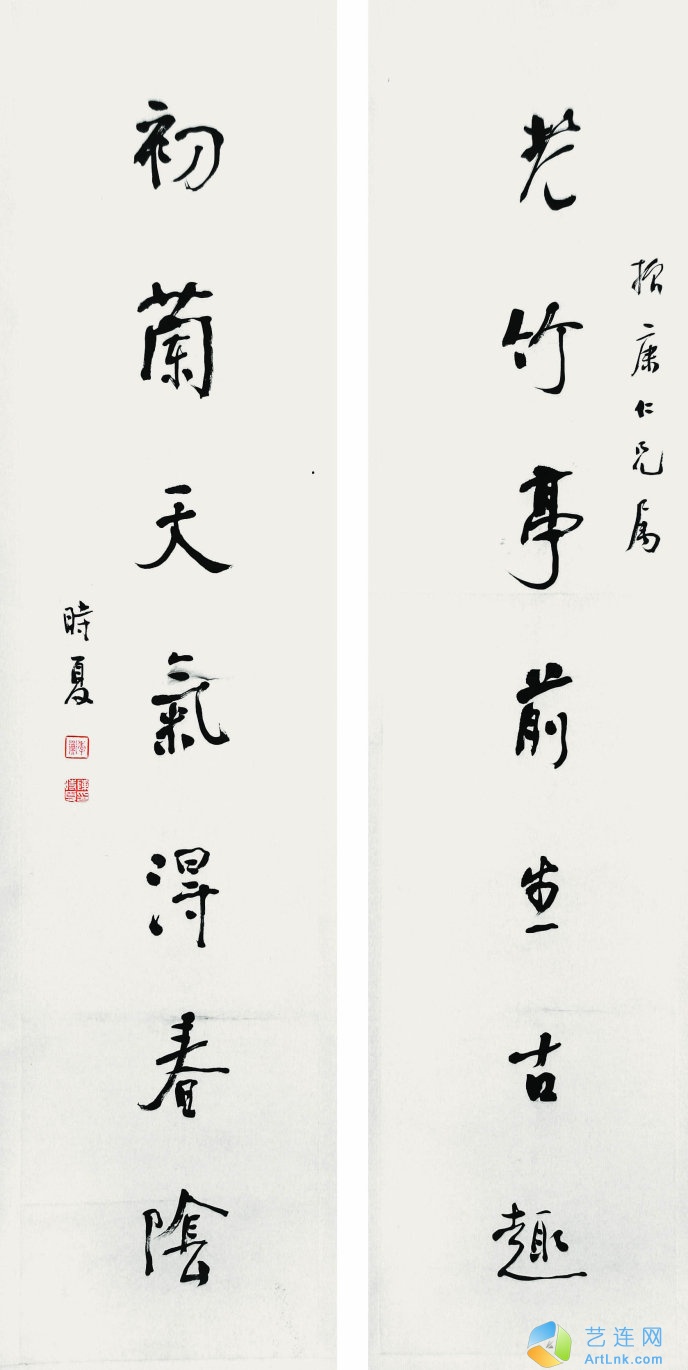 康仁兄属
老竹亭前生古趣
初蘭天氣得春陰
時夏
艺连网
ArtLnk.com